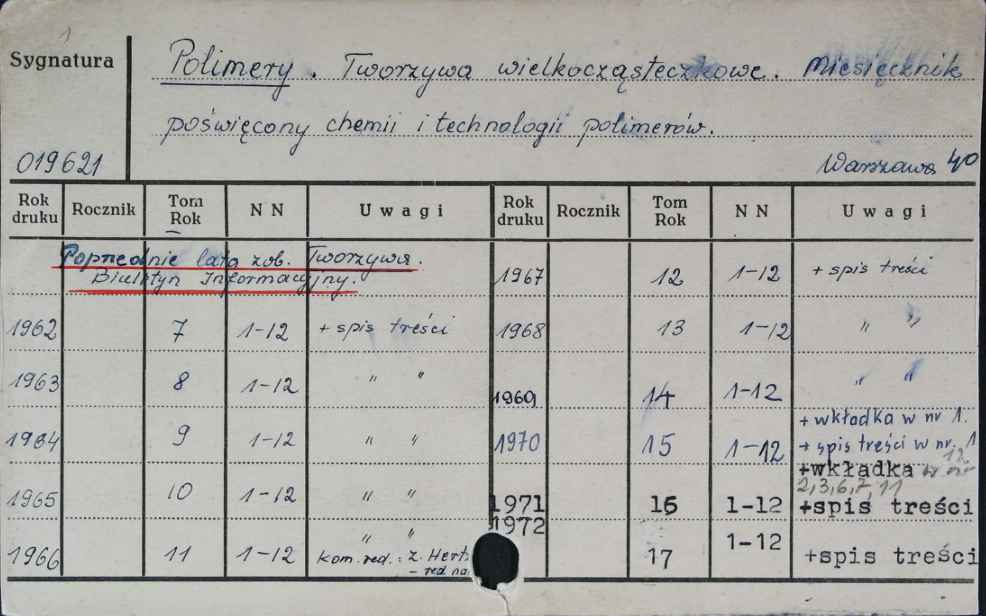 1
Sygnatura
Polimery. Tworzywa wielkocząsteczkowe. Miesięcznik
poświęcony chemii i technologii polimerów.
019621
Warszawa 40
Rok druku Rocznik Tom Rok N N Uwagi Rok druku Rocznik Tom Rok N N Uwagi
Poprzednie lata zob. Tworzywa.
Biuletyn Informacyjny.
1967 12 1-12 + spis treści
1962 7 1-12 + spis treści 1968 13 1-12 " "
1963 8 1-12 " " 1969 14 1-12 " "
+ wkładka w nr 1.
1964 9 1-12 " " 1970 15 1-12 + spis treści w nr. 1
12.
+wkładka w nr
2,3,6,7,11
1965 10 1-12 " " 1971 16 1-12 +spis treści
1972
" "
1966 11 1-12 kom. red.: Z. Hert 17 1-12 +spis treści
- red. na